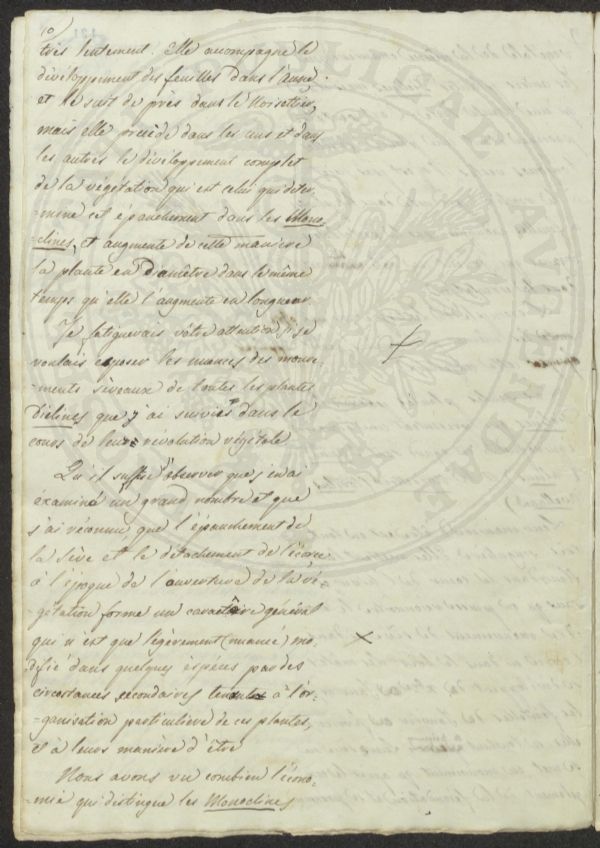 10)
très lentement. Elle accompagne le
développement des feuilles dans l'aune
et le suit de près dans le Noisettier,
mais elle précède dans les uns et dans
les autres le développement complet
de la végétation qui est celui qui déter-
-mine cet épanchement dans les Mono
clines, et augmente de cette manière
la plante en Diamêtre dans le même
temps qu'elle l'augmente en longueur.
Je fatiguerais vôtre attention si je
voulais exposer les nuances des mouve-
-ments séveaux de toutes les plantes
Diclines que j'ai suivies dans le
cours de leur révolution végétale
Qu'il suffise d'observer que j'en ai
éxaminé un grand nombre et que
j'ai réconnu que l'épanchement de
la sève et le détachement de l'écorce
à l'époque de l'ouverture de la vé-
-gétation forme un caractère général
qui n'est que légèrement (nuancé) mo-
difié dans quelques espèces par des
circostances secondaires à l'or-
-ganisation particulière de ces plantes,
et à leurs manière d'être
Nous avons vu combien l'écono-
mie qui distingue les Monoclines
PUBLICAE